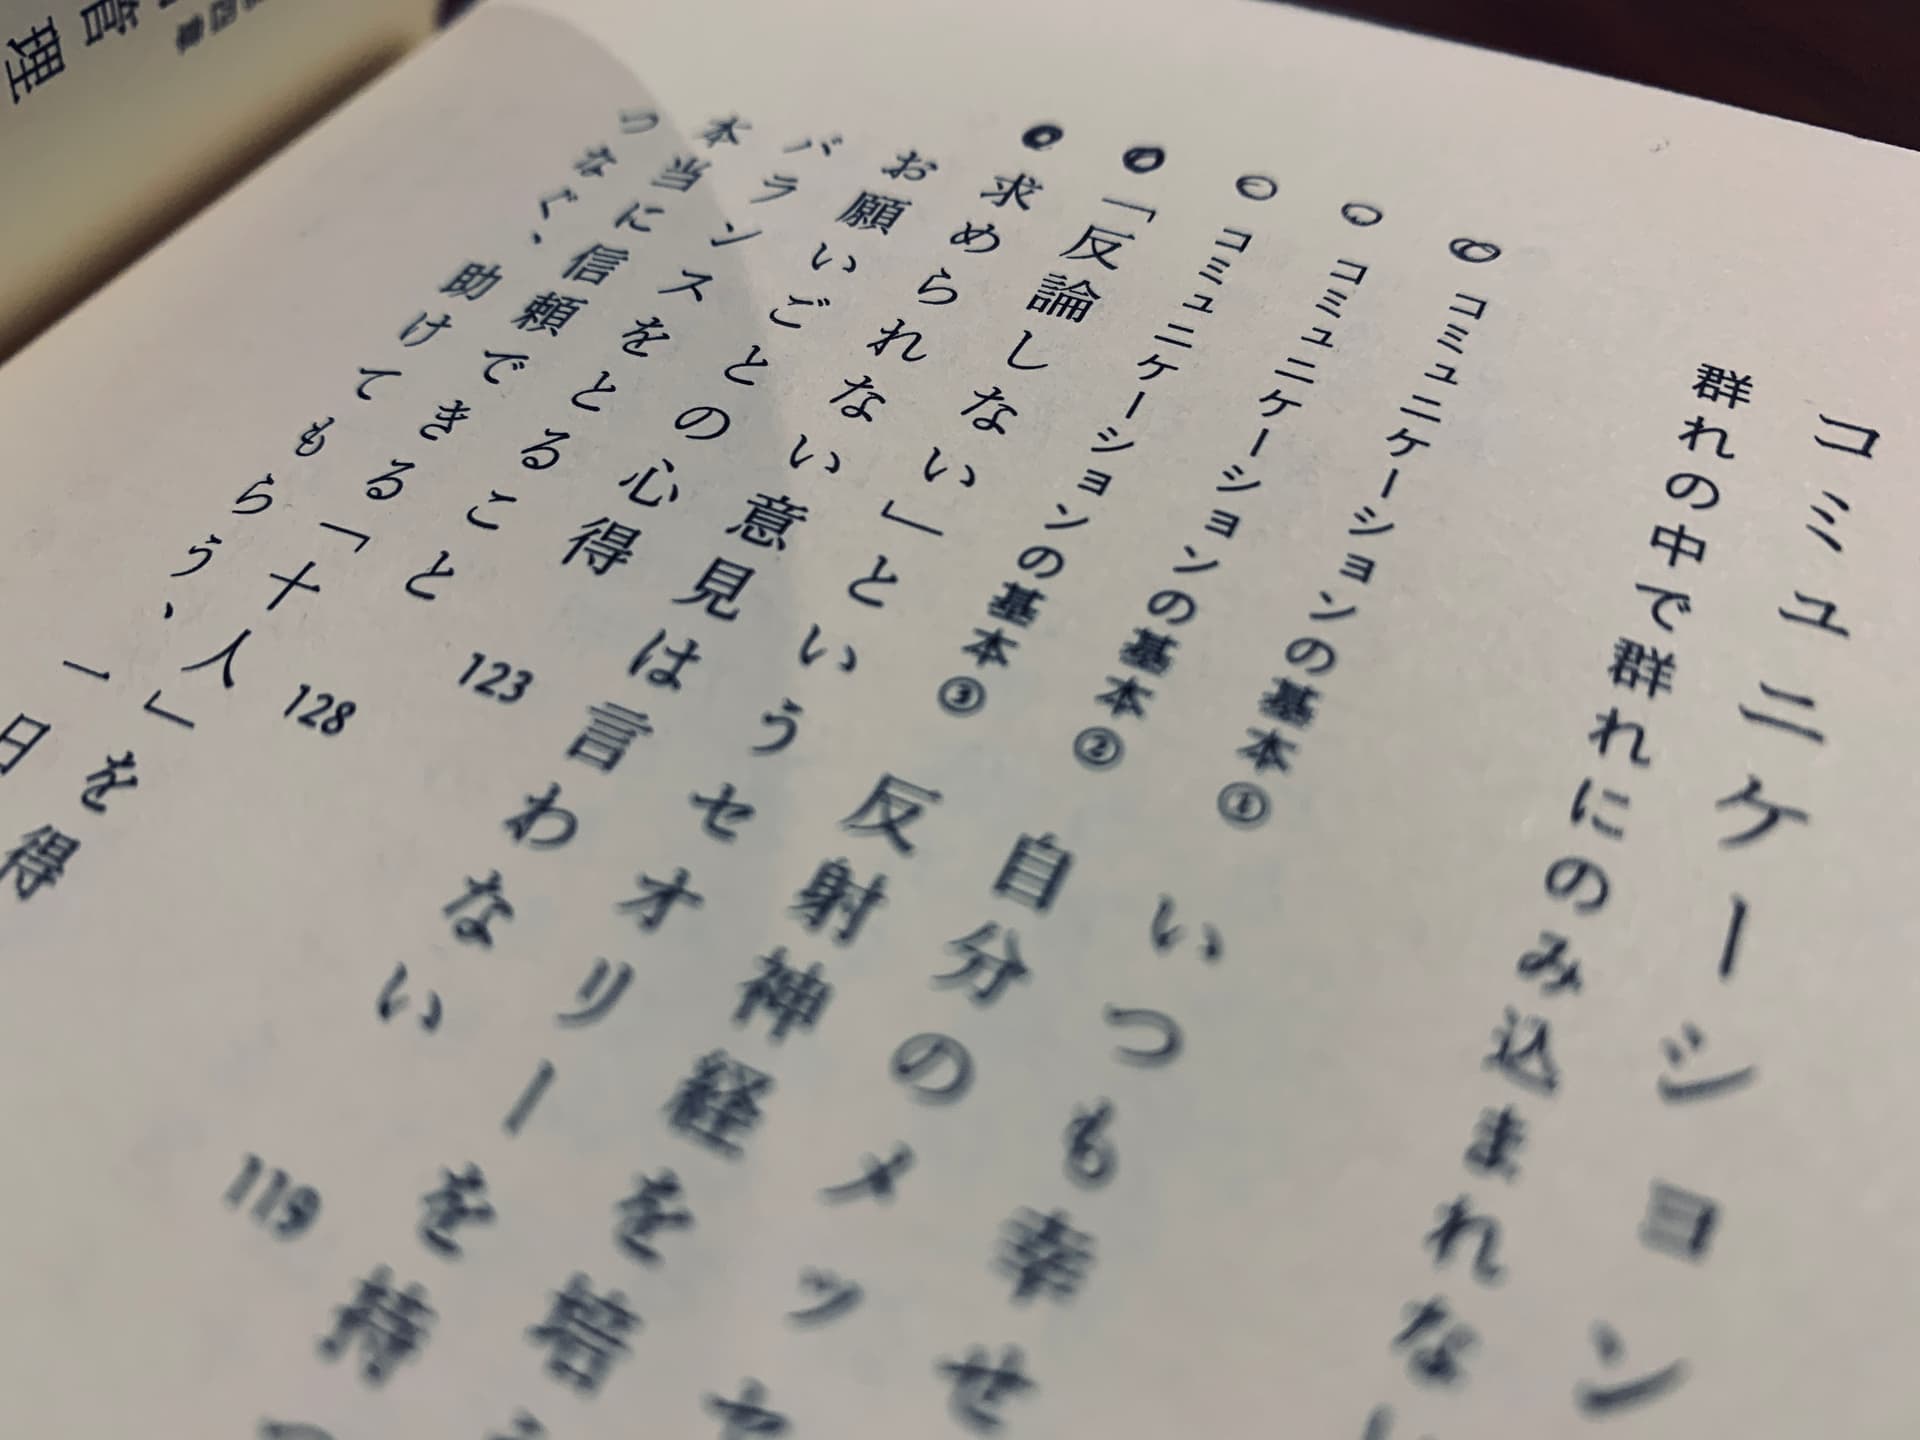 コミュニケーション
群れの中で群れにのみ込まれな
コミュニケーションの基本① いつも幸せ
コミュニケーションの基本② 自分のメッセ
コミュニケーションの基本③ 反射神経を培う
「反論しない」というセオリーを持つ
求められない意見は言わない 119
お願いごとの心得 123
バランスをとること 128
本当に信頼できる「十人」を得
つなぐ、助けてもらう、 一日
第四章
管理